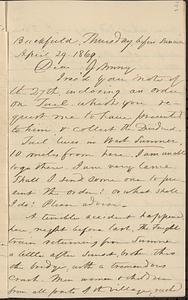 Buckfield, Thursday before Sunrise
April 29. 1869
Dear Johnny
I rec'd your note of
the 27th inclosing an order
on Tuel, which you re-
quest one to have presented
to him & collect the Dudred.
Tuel lives in West Sumner
10 miles from here. I am unable
to go there. I am very lame.
Shall I send some one to pre-
sent the order? or what shall
I do? Please advise.
A terrible accident happened
here, night before last. The freight
train returning from Sumner
a little after Sunset, broke thro
the bridge, with a tremendous
crash. Men women & children
from all parts of the village, rush